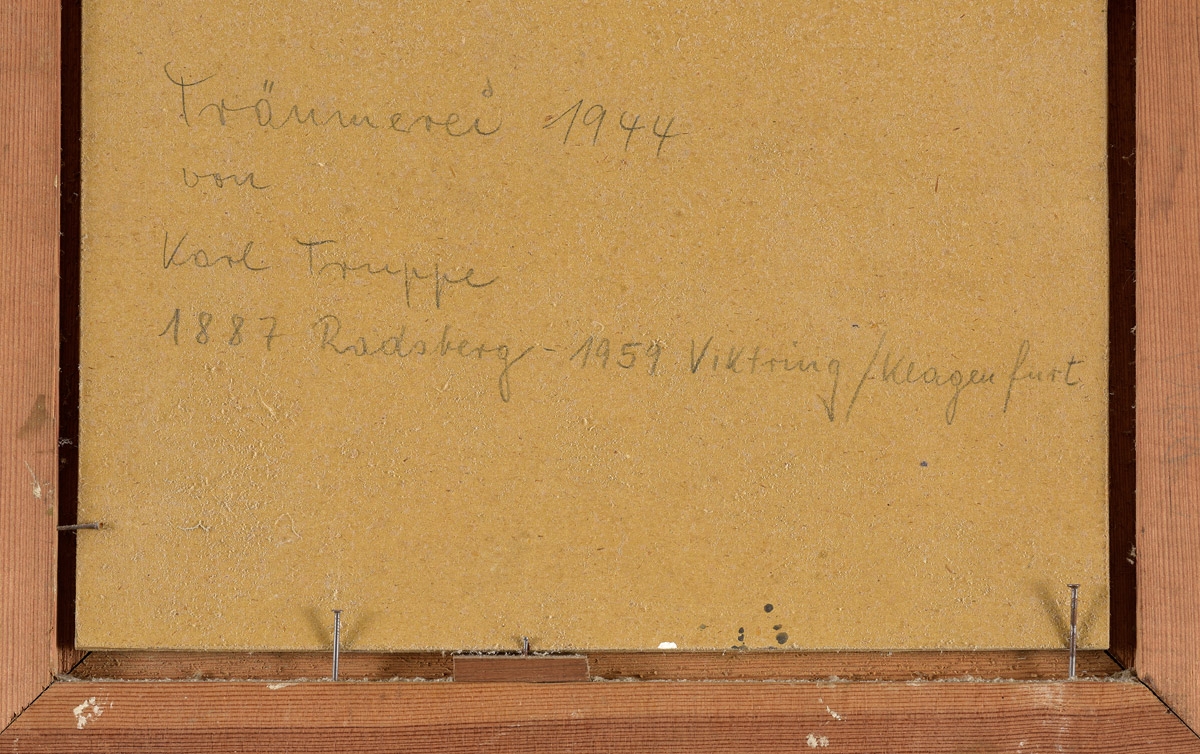 Träumerei 1944
von
Karl Truppe
1887 Radsberg - 1959 Viktring/Klagenfurt